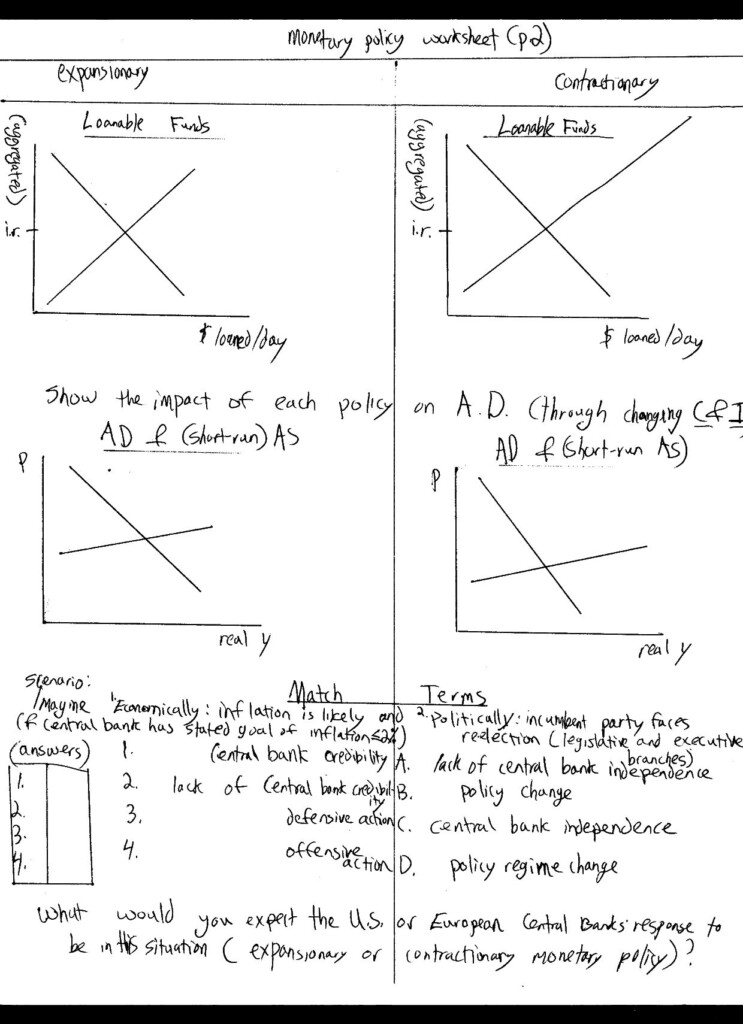 monetary policy worksheet (p2)
expansionary
contractionary
Loanable Funds
(aggregated)
i.r.
$ loaned/day
Loanable Funds
(aggregated)
i.r.
$ loaned/day
Show the impact of each policy on A.D. (through changing C & I
AD & (short-run) AS
P
real y
AD & (short-run AS)
P
real y
Match Terms
Scenario:
Imagine 1. Economically: inflation is likely and
(if central bank has stated goal of inflation ≤2%)
2. Politically: incumbent party faces
reelection (legislative and executive
branches)
(answers)
1.
2.
3.
4.
1. Central bank credibility
2. lack of Central bank credibility
3. defensive action
4. offensive action
A. lack of central bank independence
B. policy change
C. central bank independence
D. policy regime change
What would you expect the U.S. or European Central Banks' response to
be in this situation (expansionary or contractionary monetary policy)?